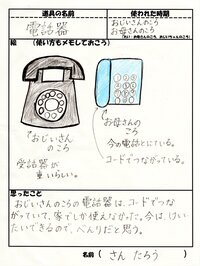 道具の名前
使われた時期
電話器
おじいさんのころ
お母さんのころ
絵 （使い方もメモしておこう）
おじいさん
のころ
受話器が
重いらしい。
お母さんの
ころ
今の電話とにている。
コードでつながっている。
思ったこと
おじいさんのころの電話器は、コードでつな
がっていて、家でしか使えなかった。今は、けい
たいできるので、べんりだと思う。
名前（ さん たろう ）